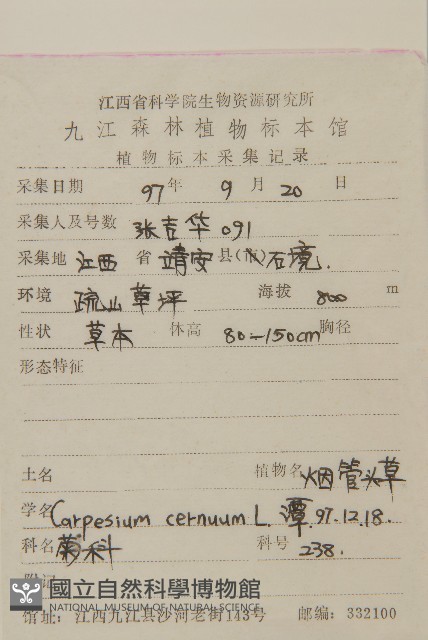 江西省科学院生物资源研究所
九江森林植物标本馆
植物标本采集记录
采集日期 97年 9月 20日
采集人及号数 张吉华 091
采集地 江西 省 靖安 县(市)石境.
环境 疏山草坪 海拔 800 m
性状 草本 体高 80—150cm 胸径
形态特征
土名 植物名 烟管头草
学名 Carpesium cernuum L. 潭. 97.12.18.
科名 菊科 科号 238.
附记
國立自然科學博物館
NATIONAL MUSEUM OF NATURAL SCIENCE
馆址: 江西九江县沙河老街143号 邮编: 332100